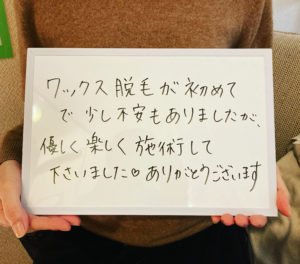 ワックス脱毛が初めて
で少し不安もありましたが、
優しく楽しく施術して
下さいました♡ありがとうございます